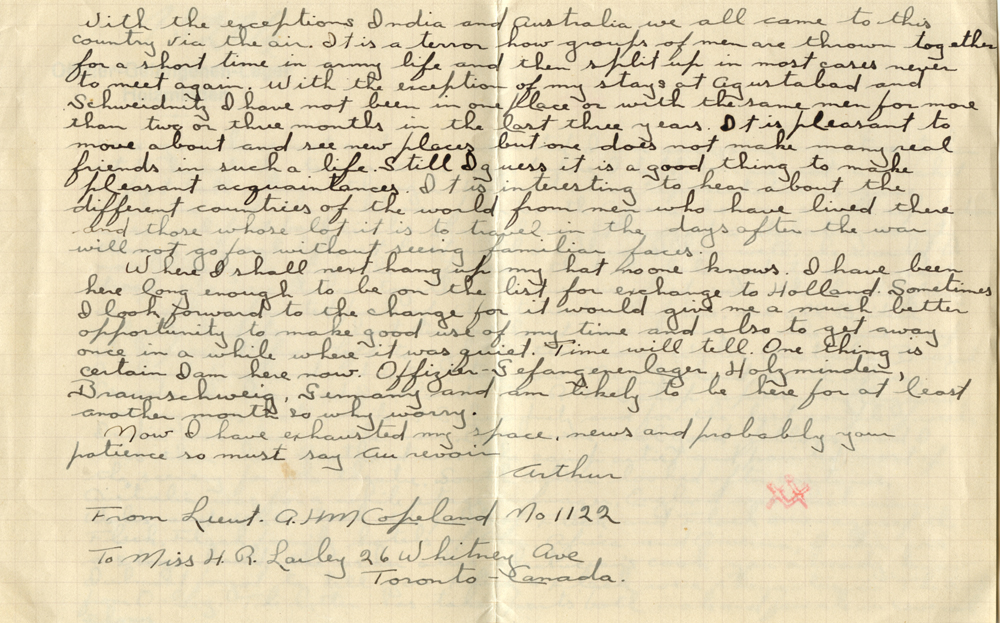 With the exceptions India and Australia we all came to this
country via the air. It is a terror how groups of men are thrown together
for a short time in army life and then split up in most cases never
to meet again. With the exception of my stays at Agustabad and
Schweidnitz I have not been in one place or with the same men for more
than two or three months in the last three years. It is pleasant to
move about and see new places but one does not make many real
friends in such a life. Still I guess it is a good thing to make
pleasant acquaintances. It is interesting to hear about the
different countries of the world from men who have lived there
and those whose lot it is to travel in the days after the war
will not go far without seeing familiar faces.
Where I shall next hang up my hat no one knows. I have been
here long enough to be on the list for exchange to Holland. Sometimes
I look forward to the change for it would give me a much better
opportunity to make good use of my time and also to get away
once in a while where it was quiet. Time will tell. One thing is
certain I am here now. Offizier-Gefangenenlager, Holzminden,
Braunschweig, Germany and am likely to be here for at least
another month so why worry.
Now I have exhausted my space, news and probably your
patience so must say au revoir
Arthur
From Lieut. A.HM Copeland No 1122
To Miss H. R. Lailey 26 Whitney Ave
Toronto - Canada.